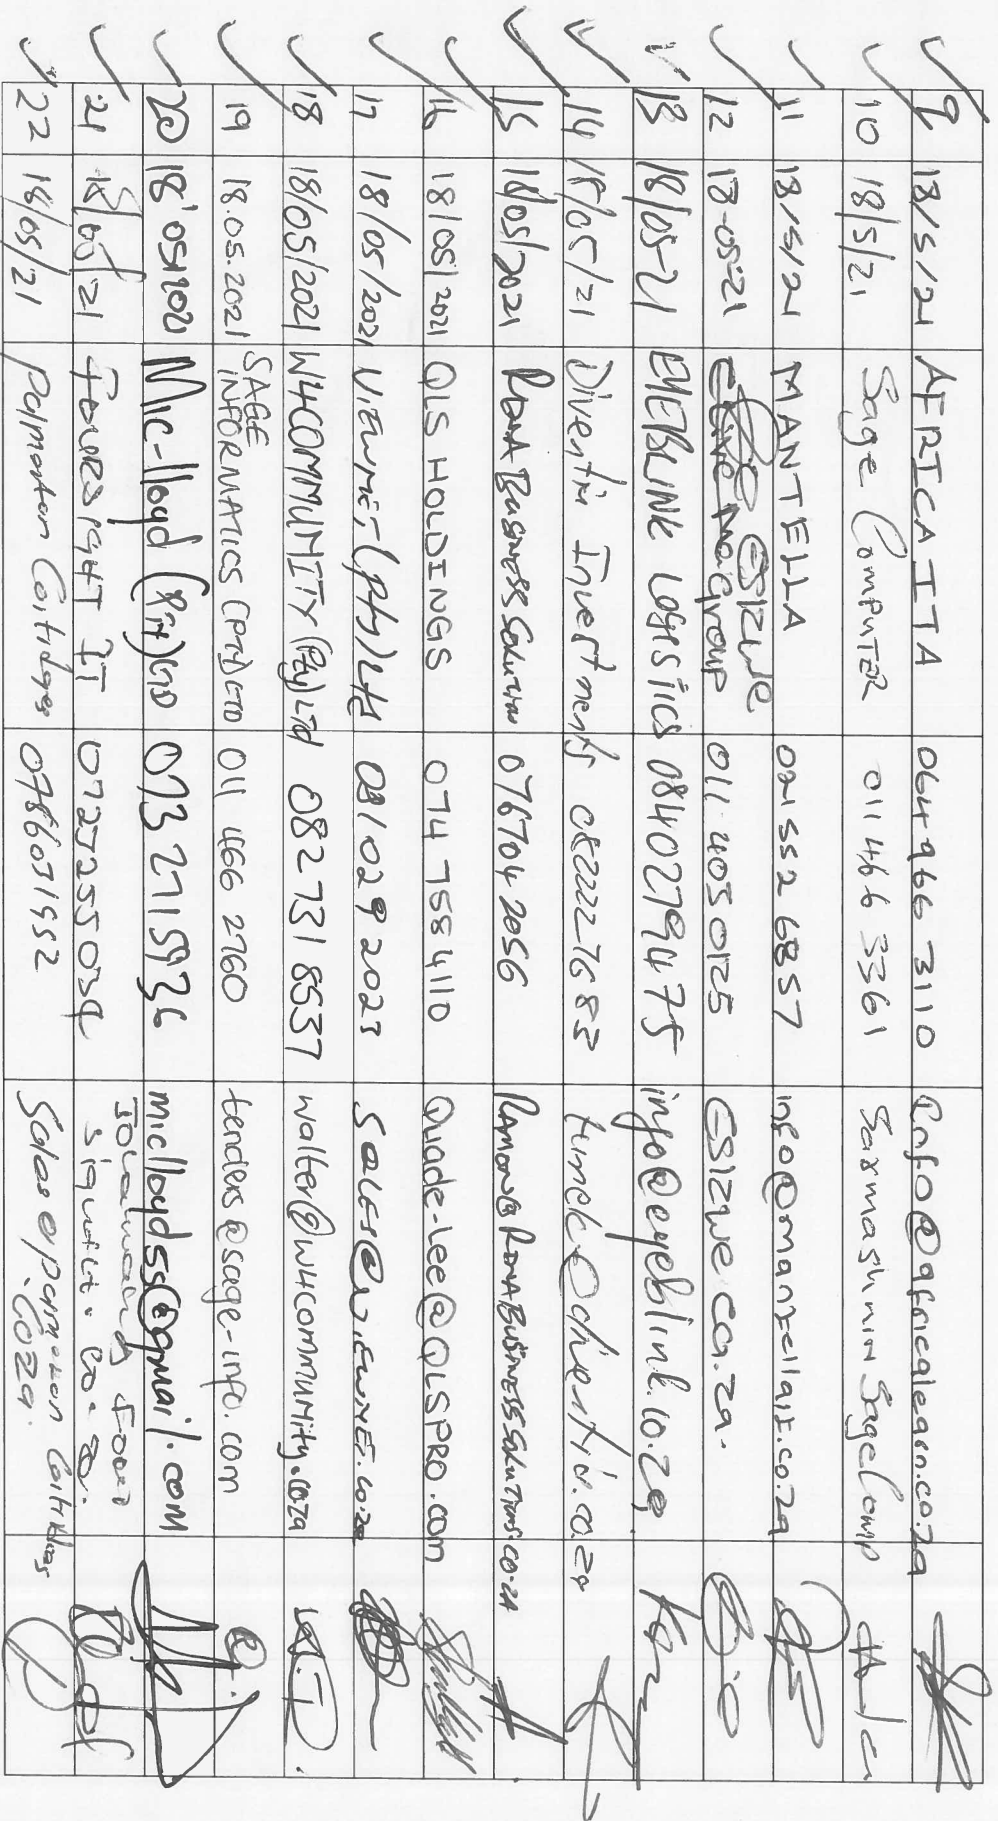 9 18/5/21 AFRICA ITA 064 966 3110 Info@africalearn.co.za
10 18/5/21 Sage Computer 011 466 3361 Sarmashnin SageComp
11 18/5/21 MANTELLA 021 552 6857 info@mantellait.co.za
12 18-05-21 ESIZWE Group 011 405 0125 ESIZWE.co.za.
13 18/05-21 EYEBLINK LOGISTICS 0840279475 info@eyeblink.co.za
14 18/05/21 Diventin Investments 0822227683
15 18/05/2021 RDNA Business Solution 076704 2056 RAMON@RDNABUSINESSSOLUTIONS.CO.ZA
16 18/05/2021 QLS HOLDINGS 074 7584110 Quade-Lee@QLSPRO.com
17 18/05/2021 VIEWMET (pty) Ltd 081 029 2023 SALES@VIEWMET.co.za
18 18/05/2021 W4COMMUNITY (Pty) Ltd 082 731 8537 walter@w4community.coza
19 18.05.2021 SAGE INFORMATICS (PTY) LTD 011 466 2760 tenders@sage-info.com
20 18'05/2021 Mic-lloyd (Pty) LTD 073 2715936 miclloydss@gmail.com
21 18/05/21 FOURSIGHT IT 0725255039
22 18/05/21 Parmaton Catridges 0786031952 Sales@parmaton Catridges
.coza.